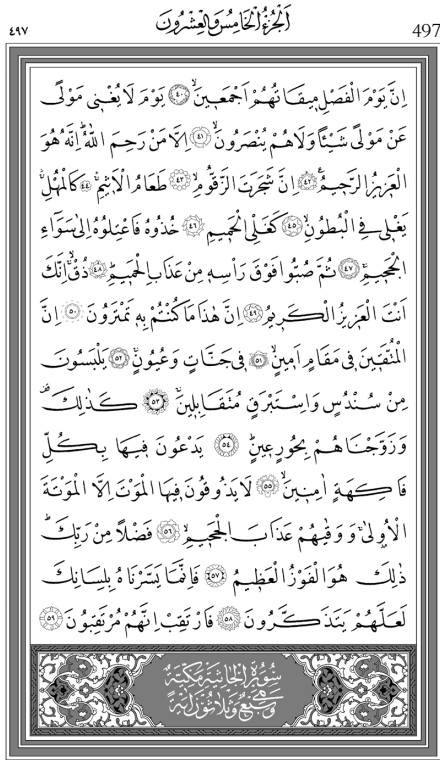 497
اَلْجُزْءُ الْخَامِسُ وَالْعِشْرُونَ
٤٩٧
اِنَّ يَوْمَ الْفَصْلِ مٖيقَاتُهُمْ اَجْمَعٖينَۙ ﴿٤٠﴾ يَوْمَ لَا يُغْنٖى مَوْلًى
عَنْ مَوْلًى شَيْـًٔا وَلَا هُمْ يُنْصَرُونَۙ ﴿٤١﴾ اِلَّا مَنْ رَحِمَ اللّٰهُؕ اِنَّهُ هُوَ
الْعَزٖيزُ الرَّحٖيمُࣖ ﴿٤٢﴾ اِنَّ شَجَرَتَ الزَّقُّومِۙ ﴿٤٣﴾ طَعَامُ الْاَثٖيمِۚۛ ﴿٤٤﴾ كَالْمُهْلِۚۛ
يَغْلٖى فِى الْبُطُونِۙ ﴿٤٥﴾ كَغَلْىِ الْحَمٖيمِ ﴿٤٦﴾ خُذُوهُ فَاعْتِلُوهُ اِلٰى سَوَٓاءِ
الْجَحٖيمِۗ ﴿٤٧﴾ ثُمَّ صُبُّوا فَوْقَ رَاْسِهٖ مِنْ عَذَابِ الْحَمٖيمِؕ ﴿٤٨﴾ ذُقْۙ اِنَّكَ
اَنْتَ الْعَزٖيزُ الْكَرٖيمُ ﴿٤٩﴾ اِنَّ هٰذَا مَا كُنْتُمْ بِهٖ تَمْتَرُونَ ﴿٥٠﴾ اِنَّ
الْمُتَّقٖينَ فٖى مَقَامٍ اَمٖينٍۙ ﴿٥١﴾ فٖى جَنَّاتٍ وَعُيُونٍۚ ﴿٥٢﴾ يَلْبَسُونَ
مِنْ سُنْدُسٍ وَاِسْتَبْرَقٍ مُتَقَابِلٖينَۚ ﴿٥٣﴾ كَذٰلِكَ
وَزَوَّجْنَاهُمْ بِحُورٍ عٖينٍؕ ﴿٥٤﴾ يَدْعُونَ فٖيهَا بِكُلِّ
فَاكِهَةٍ اٰمِنٖينَۙ ﴿٥٥﴾ لَا يَذُوقُونَ فٖيهَا الْمَوْتَ اِلَّا الْمَوْتَةَ
الْاُو۫لٰىۚ وَوَقٰيهُمْ عَذَابَ الْجَحٖيمِۙ ﴿٥٦﴾ فَضْلًا مِنْ رَبِّكَؕ
ذٰلِكَ هُوَ الْفَوْزُ الْعَظٖيمُ ﴿٥٧﴾ فَاِنَّمَا يَسَّرْنَاهُ بِلِسَانِكَ
لَعَلَّهُمْ يَتَذَكَّرُونَ ﴿٥٨﴾ فَارْتَقِبْ اِنَّهُمْ مُرْتَقِبُونَ ﴿٥٩﴾
سُورَةُ الْجَاثِيَةِ مَكِّيَّةٌ
وَهِىَ سَبْعٌ وَثَلَاثُونَ اٰيَةً